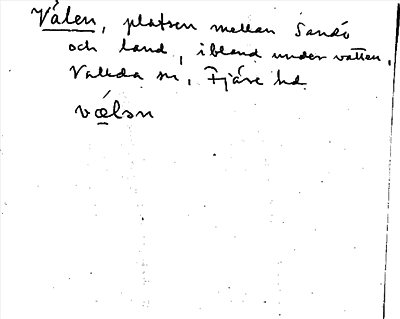 Vålen, platsen mellan Sandö
och land, ibland under vatten.
Vallda sn, Fjäre hd.
vælən